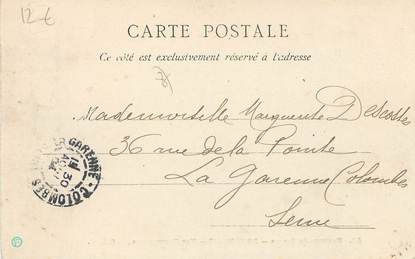 12 €
CARTE POSTALE
Ce côté est exclusivement réservé à l'adresse
Mademoiselle Marguerite Descottes
36 rue de la Pointe
La Garenne Colombes
Seine
GARENNE - COLOMBES
30